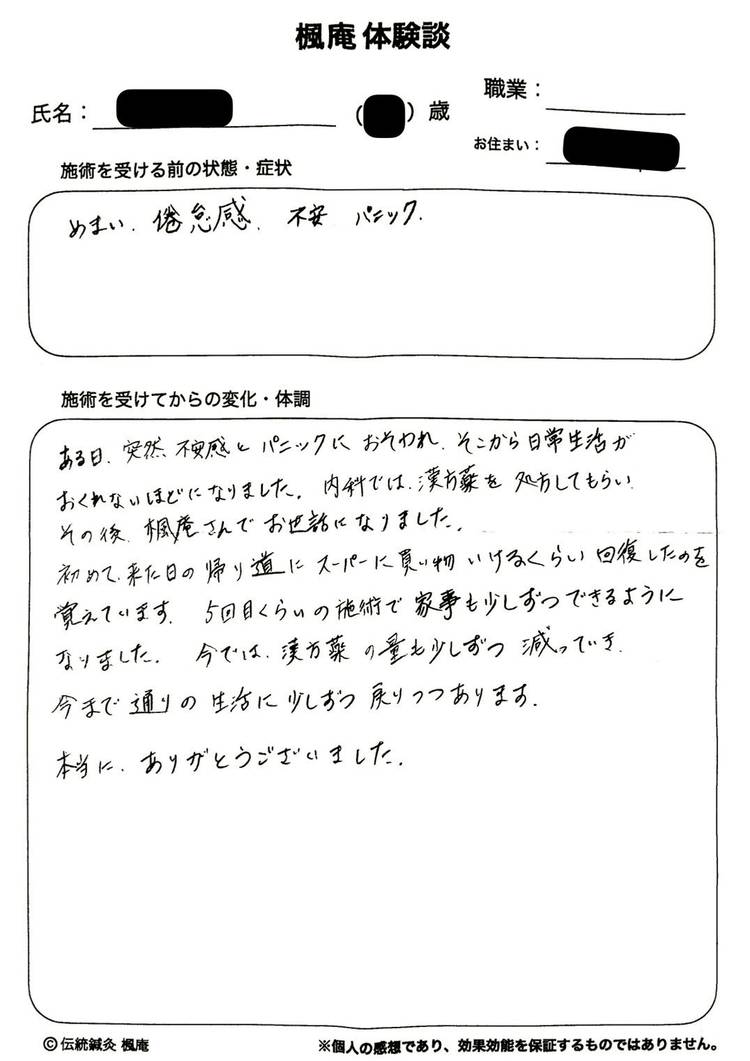 楓庵 体験談
職業：
氏名：
（ ）歳
お住まい：
施術を受ける前の状態・症状
めまい、倦怠感、不安 パニック、
施術を受けてからの変化・体調
ある日、突然 不安感と パニックに おそわれ、そこから日常生活が
おくれないほどになりました。内科では、漢方薬を 処方してもらい、
その後、楓庵さんで お世話になりました。
初めて、来た日の帰り道に スーパーに買い物 いけるくらい 回復したのを
覚えています。5回目くらいの施術で 家事も少しずつできるように
なりました。今では、漢方薬の量も少しずつ 減っていき、
今まで通りの 生活に 少しずつ 戻りつつあります。
本当に、ありがとうございました。
©伝統鍼灸 楓庵
※個人の感想であり、効果効能を保証するものではありません。